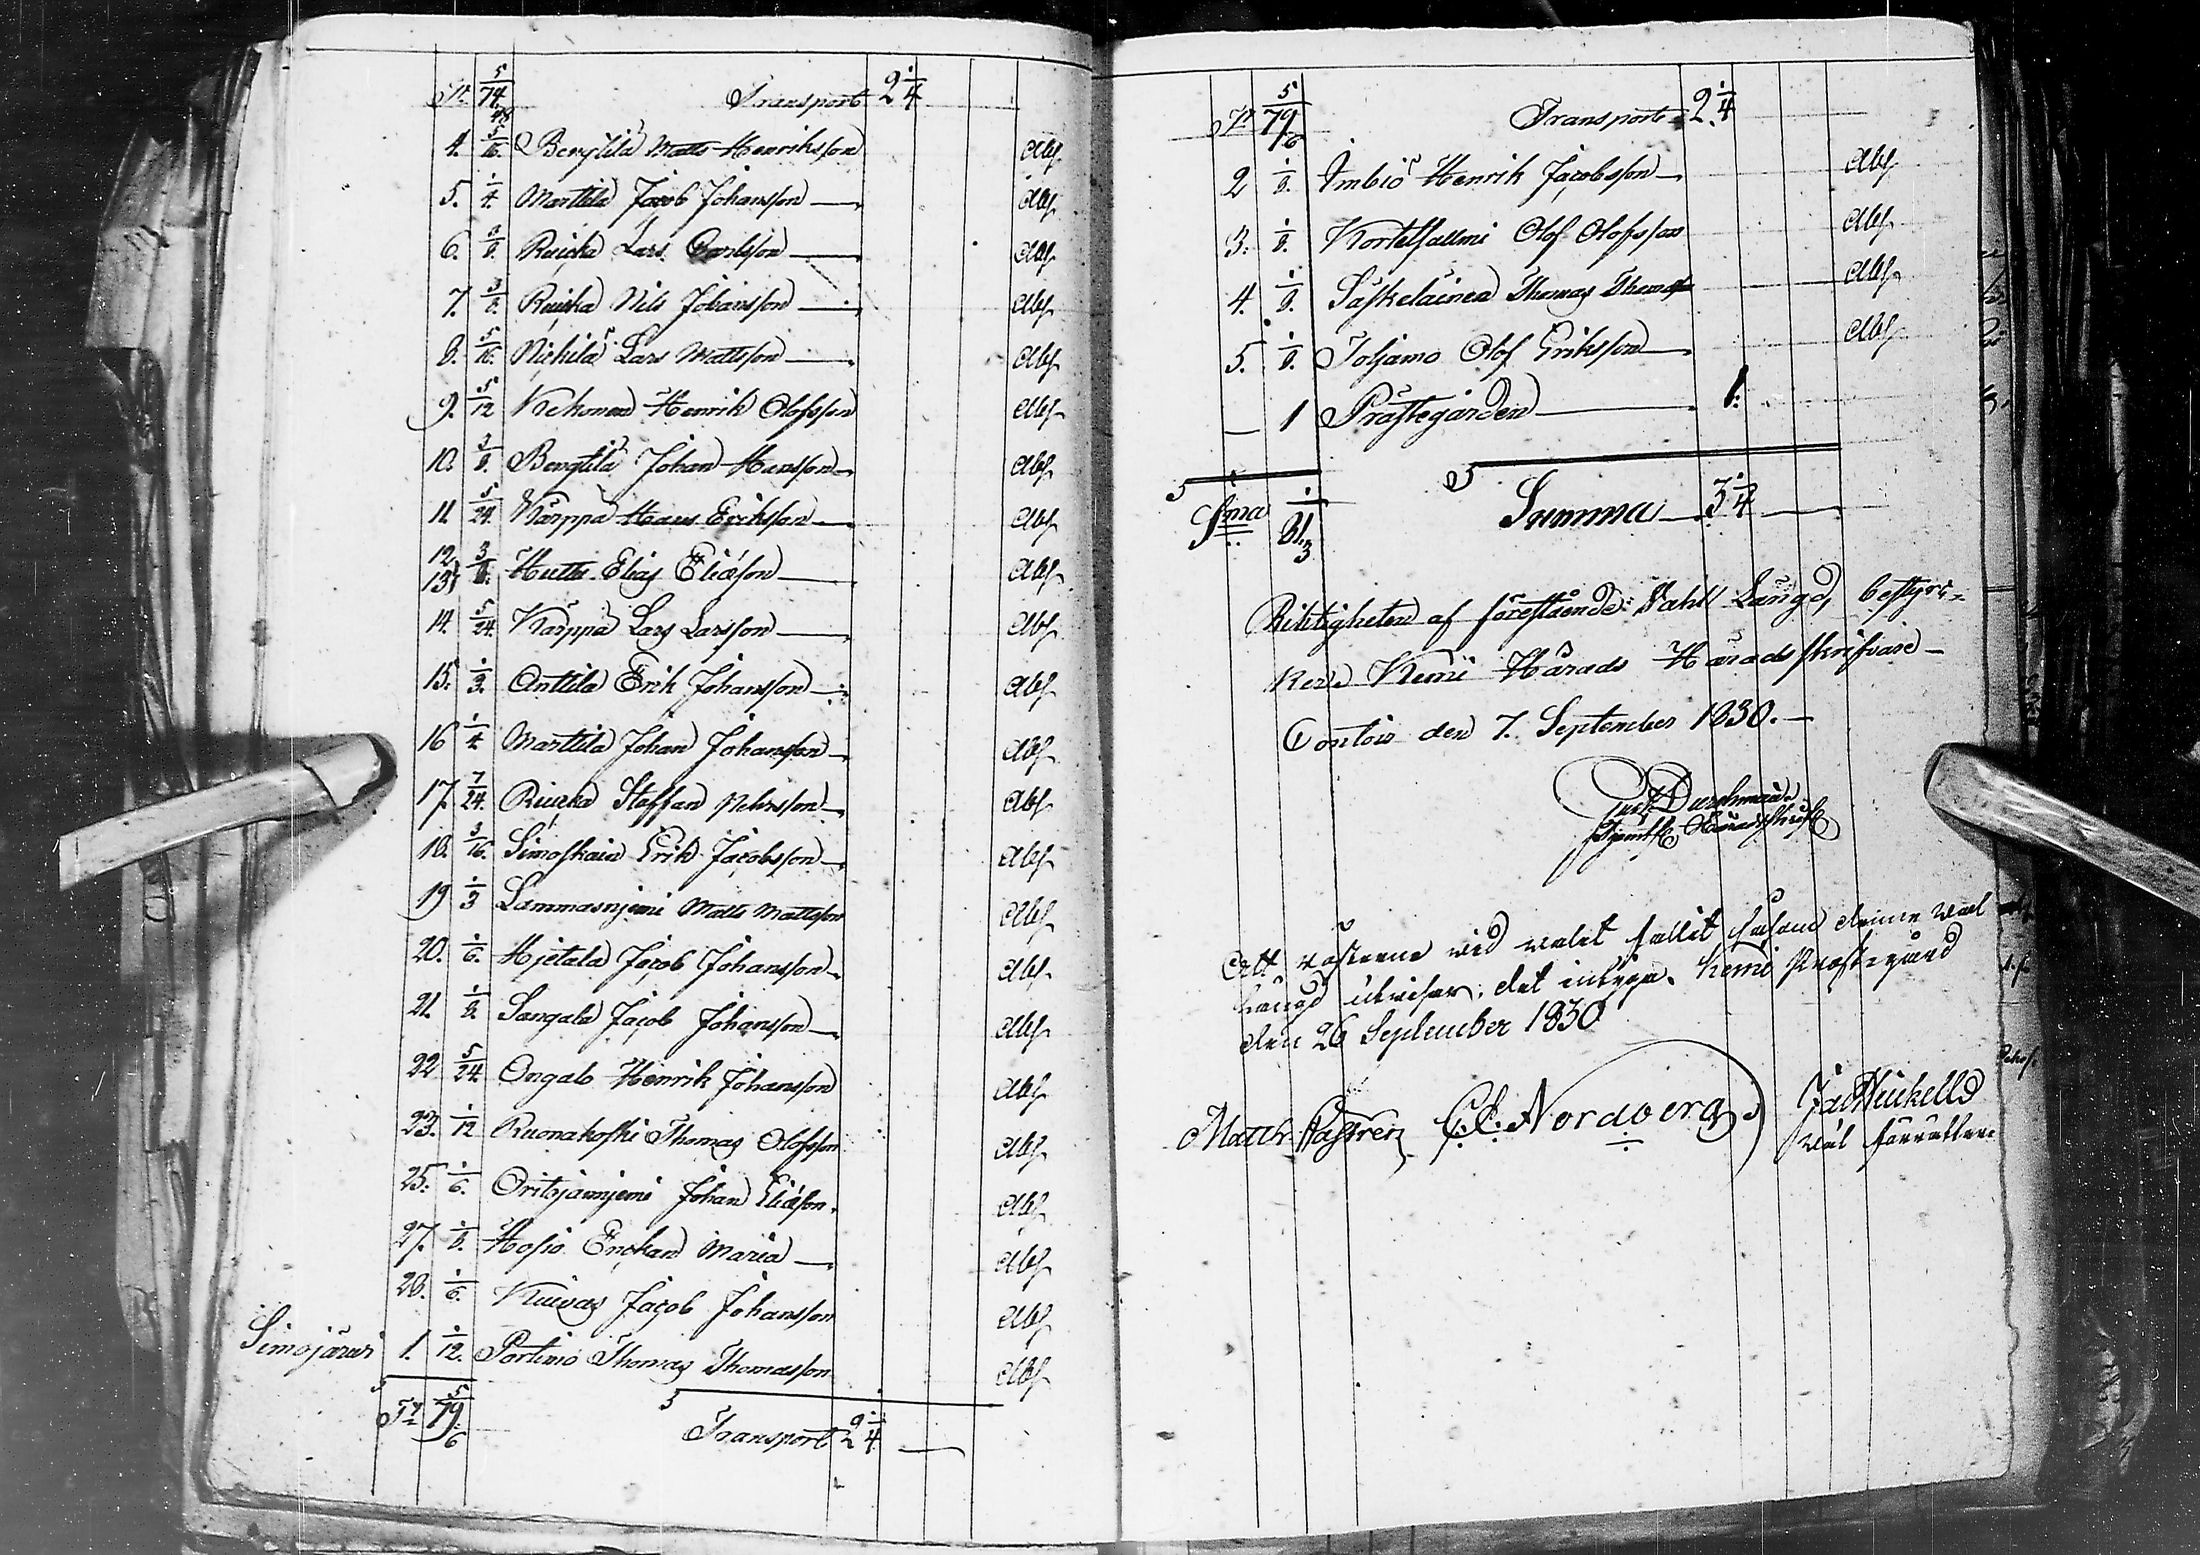 Tr. 74 5/48 Transport 2 1/4
4. 5/16. Bergtila Matts Henriksson Abs.
5. 1/4. Marttila Jacob Johansson Abs.
6. 3/8. Ruicka Lars Carlsson Abs.
7. 3/8. Ruicka Nils Johansson Abs.
8. 5/16. Nickilä Lars Mattsson Abs.
9. 5/12 Kehonen Henrik Olofsson Abs.
10. 3/8. Bengtila Johan Hansson Abs.
11. 5/24. Kärppä Hans Eriksson Abs.
12. 13. 3/8. Hutta Elias Eliæson Abs.
14. 5/24. Kärppä Lars Larsson Abs.
15. 1/3. Anttila Erik Johansson Abs.
16 1/4. Marttila Johan Johansson Abs.
17. 7/24. Ruicka Staffan Abs.
18. 3/16. Simoskain Erik Jacobsson Abs.
19 1/3 Lammasnjemi Matts Mattsson Abs.
20. 1/6. Hjetala Jacob Johansson Abs.
21. 1/8. Sangala Jacob Johansson Abs.
22 5/24. Ongalo Henrik Johansson Abs.
23. 1/12 Ruonakoski Thomas Olofsson Abs.
25. 1/6. Oritojamjemi Johan Eliæson. Abs.
27. 1/8. Hosio Enckan Maria Abs.
28. 1/6. Kuivas Jacob Johansson Abs.
Simojärwi 1. 1/12. Portimo Thomas Thomasson Abs.
Tr 79 5/6 Transport 2 1/4
Tr 79 5/6 Transport 2 1/4
2 1/8. Imbiö Henrik Jacobsson Abs.
3. 1/8. Kortetsallmi Olof Olofsson Abs.
4. 1/8. Säskeläinen Thomas Thomass Abs.
5. 1/8. Toljamo Olof Eriksson Abs.
1 Prästegården 1.
Sma 81. 1/3 Summa 3 1/4
Riktigheten af förestående Wahl Längd, bestyr-
kes. Kemi Härads Häradsskrifvare
Contoir den 7. September 1830.
Häradsskrif
Att rösterne vid valet fallit såsom denna Val
Längd utvisar; det intyga. Kemi Prostegård
den 26 September 1830
Matth Castrén C.E. Nordberg Jac Heickell
Val förrättare